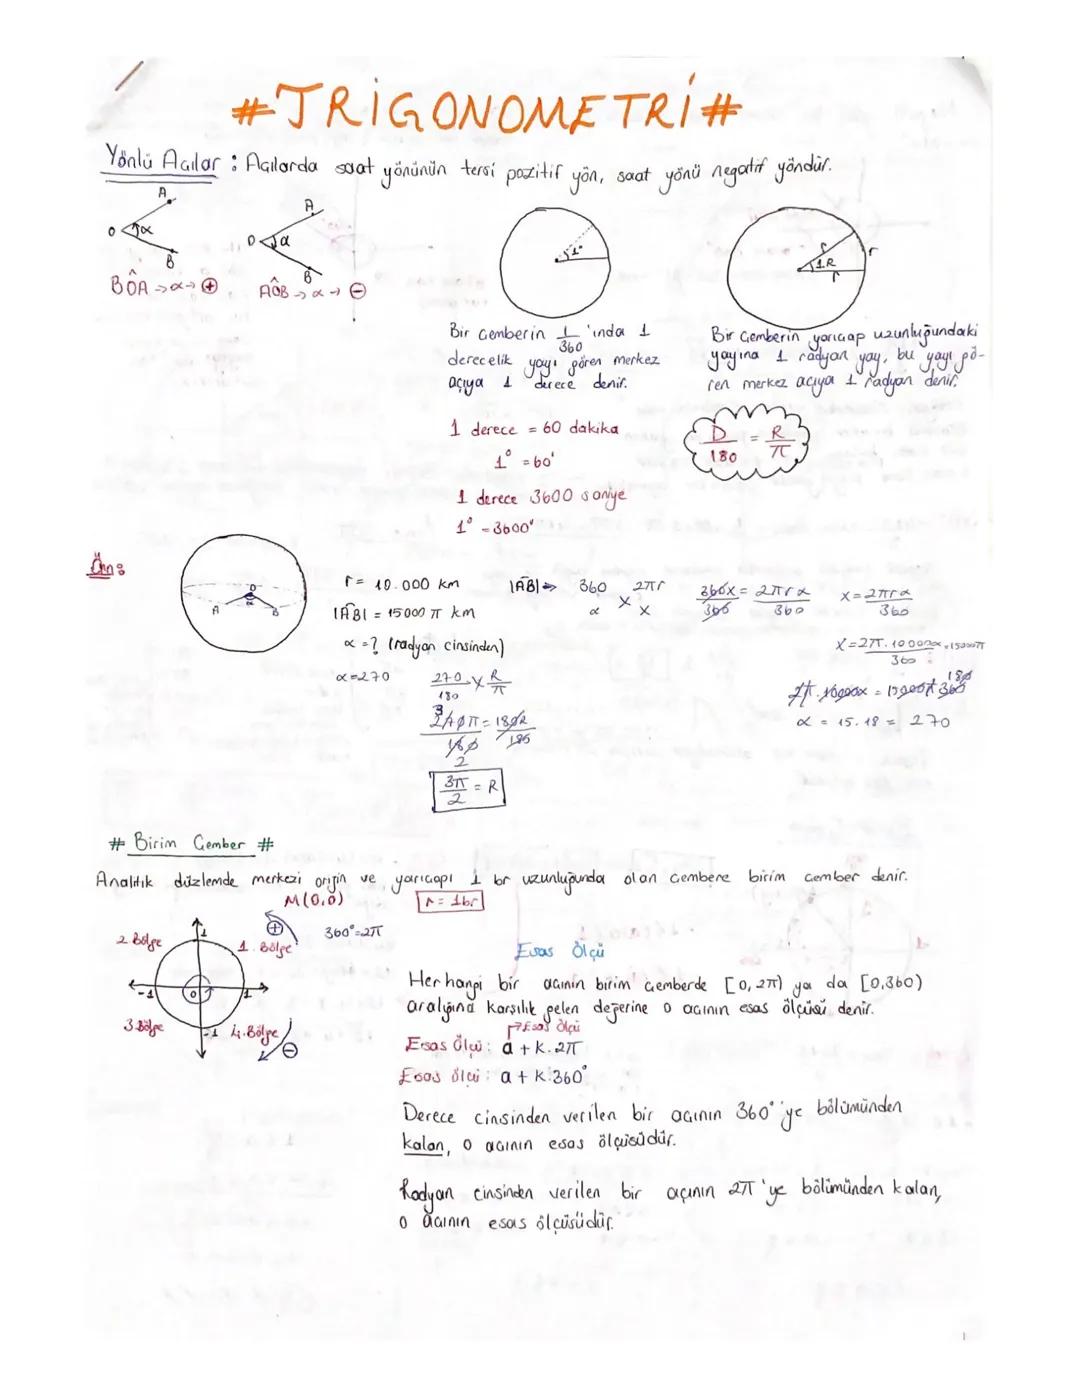 #TRİGONOMETRİ#
Yönlü Açılar : Açılarda saat yönünün tersi pozitif yön, saat yönü negatif yöndür.
A
O α
B
BÔA → α → +
A
O α
B
AÔB → α → -
1°
r r
1R
r
Bir çemberin 1/360 'ında 1
derecelik yayı gören merkez
açıya 1 derece denir.
1 derece = 60 dakika
1° = 60'
1 derece 3600 saniye
1° = 3600"
Bir Çemberin yarıçap uzunluğundaki
yayına 1 radyan yay, bu yayı gö-
ren merkez açıya 1 radyan denir.
D/180 = R/π
Örn:
O
A α B
r = 10.000 km
|AB| = 15000 π km
α = ? (radyan cinsinden)
α = 270
270/180 × R/π
270π/180 = 180R/180
3
2
3π/2 = R
|AB| → 360 2πr
α × x
360x/360 = 2πrα/360
x = 2πrα/360
x = 2π.10000α/360 = 15000π
2π.10000α = 15000π 360
180
α = 15.18 = 270
# Birim Çember #
Analitik düzlemde merkezi orijin ve yarıçapı 1 br uzunluğunda olan çembere birim çember denir.
M(0,0)
r = 1br
2. Bölge
1
1. Bölge
+
360° = 2π
-1 0 1
3. Bölge
-1
4. Bölge
-
Esas Ölçü
Herhangi bir açının birim çemberde [0, 2π) ya da [0,360)
aralığına karşılık gelen değerine o açının esas ölçüsü denir.
→ Esas Ölçü
Esas Ölçü : a + k. 2π
Esas ölçü : a + k.360°
Derece cinsinden verilen bir açının 360° 'ye bölümünden
kalan, o açının esas ölçüsüdür.
Radyan cinsinden verilen bir açının 2π 'ye bölümünden kalan,
o açının esas ölçüsüdür.
1